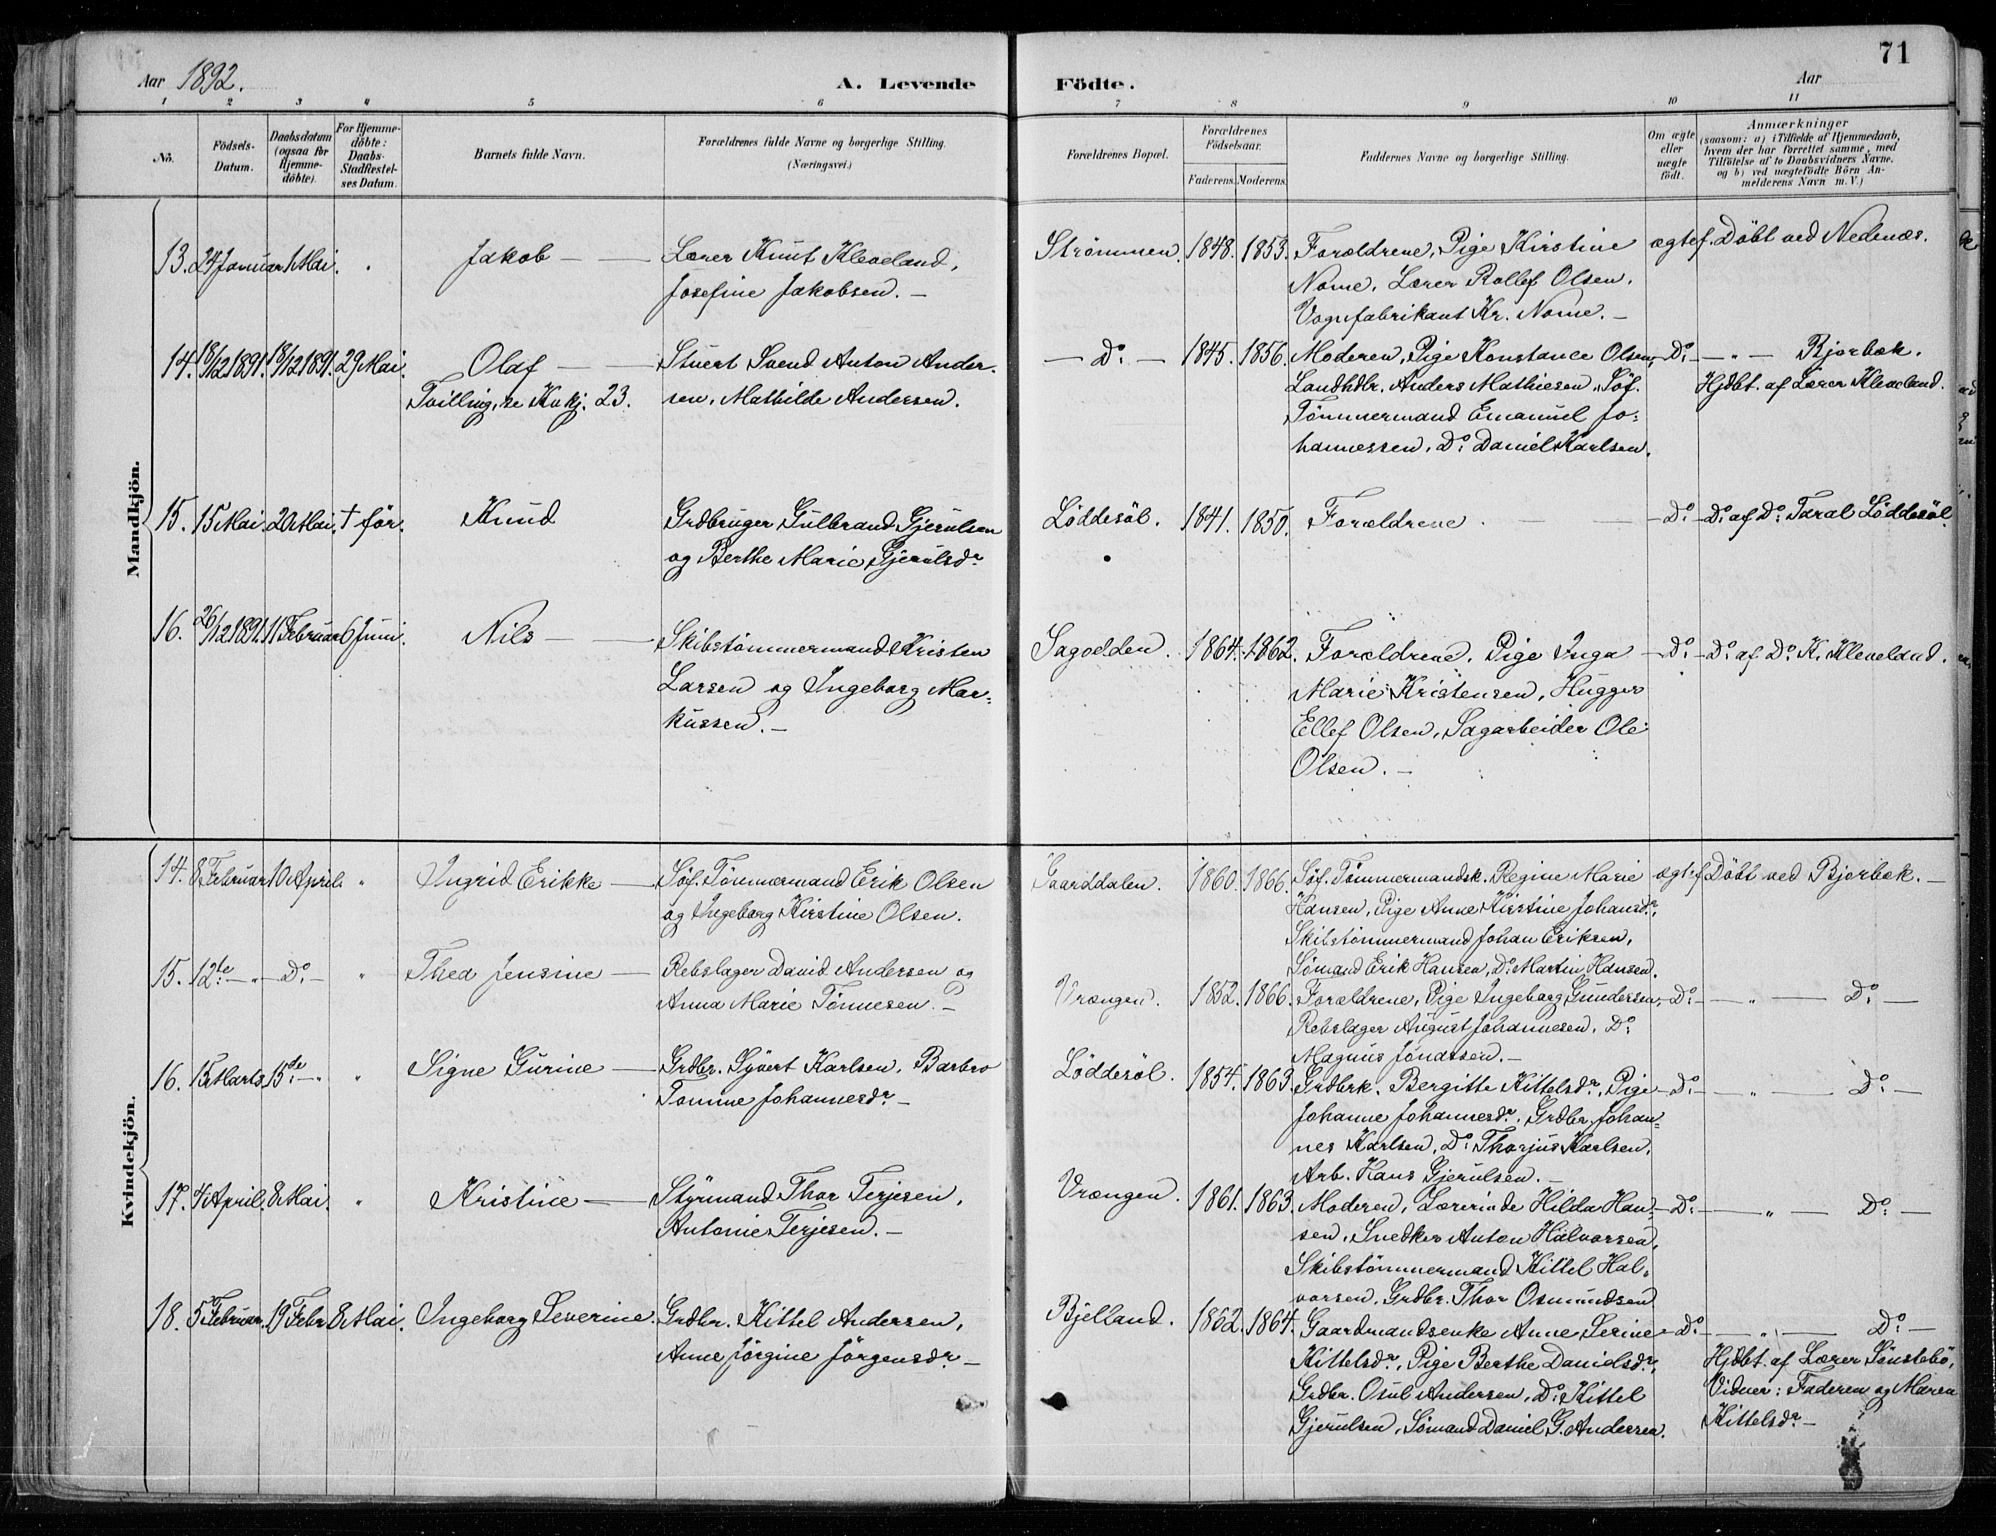 71
Aar 1892.
A. Levende
Födte.
Aar
1 2 3 4 5 6 7 8 9 10 11
No.
Födsels-
Datum.
Daabsdatum
(ogsaa for
Hjemme-
döbte).
For Hjemme-
döbte:
Daabs-
Stadfæstel-
ses Datum.
Barnets fulde Navn.
Forældrenes fulde Navne og borgerlige Stilling.
(Næringsvei.)
Forældrenes Bopæl.
Forældrenes
Födselsaar.
Faderens. Moderens.
Faddernes Navne og borgerlige Stilling.
Om ægte
eller
uægte
födt.
Anmærkninger
(saasom: a) i Tilfælde af Hjemmedaab,
hvem der har forrettet samme, med
Tilföielse af to Daabsvidners Navne.
og b) ved uægtefödte Börn An-
melderens Navn m. V.)
Mandkjön.
13. 24 Januar 1 Mai. " Jakob
Lærer Knut Kleveland,
Josefine Jakobsen. –
Strömmen. 1848. 1853.
Forældrene, Pige Kirstine
Nome, Lærer Rollef Olsen,
Vognfabrikant Kr. Nome. –
ægtef. Döbt ved Nedenæs.
14. 18/12 1891. 18/12 1891. 29 Mai. Olaf
Tvilling, se Kvkj. 23.
Stuert Svend Anton Ander-
sen, Mathilde Andersen.
– Do: – 1845. 1856.
Moderen, Pige Konstance Olsen,
Landhdlr. Anders Mathiesen, Söf.
Tömmermand Emanuel Jo-
hannessen, Do: Daniel Karlsen.
– Do: – – " – Bjorbæk.
Hjdbt. af Lærer Kleveland.
15. 15 Mai. 20 Mai. † för. Knud
Grdbruger Gulbrand Gjerulsen
og Berthe Marie Gjerulsdr
Löddesöl. 1841. 1850.
Forældrene
– Do: – Do: af Do: Taral Löddesöl.
16. 26/12 1891. 11 Februar 6 Juni. Nils
Skibstömmermand Kristen
Larsen og Ingeborg Mar-
kussen. –
Sagodden. 1864. 1862.
Forældrene, Pige Inga
Marie Kristensen, Hugger
Ellef Olsen, Sagarbeider Ole
Olsen. –
– Do: – Do: af Do: K. Kleveland.
Kvindekjön.
14. 8 Februar 10 April. " Ingrid Erikke
Söf. Tömmermand Erik Olsen
og Ingeborg Kirstine Olsen.
Gaarddalen. 1860. 1866.
Söf. Tömmermandsk. Regine Marie
Hansen, Pige Anne Kirstine Johansdr,
Skibstömmermand Johan Eriksen,
Sömand Erik Hansen, Do: Martin Hansen.
ægtef Döbt ved Bjorbæk. –
15. 12te – " – Do: – " Thea Jensine
Rebslager David Andersen og
Anna Marie Tönnesen. –
Vrængen. 1852. 1866.
Forældrene, Pige Ingeborg Gundersen,
Rebslager August Johannesen, Do:
Magnus Jonassen. –
– Do: – – " – Do: –
16. 15 Marts. 15de – " – " Signe Gurine
Grdbr. Syvert Karlsen, Barbro
Tomine Johannesdr –
Löddesöl. 1854. 1863.
Grdbrk. Bergitte Kittelsdr, Pige
Johanne Johannesdr, Grdbr. Johan-
nes Karlsen, Do: Thorjus Karlsen,
Arb. Hans Gjerulsen. –
– Do: – – " – Do: –
17. 4 April. 8 Mai. " Kristine
Styrmand Thor Terjesen,
Antonie Terjesen. –
Vrængen. 1861. 1863.
Moderen, Lærerinde Hilda Han-
sen, Snedker Anton Halvorsen,
Skibstömmermand Kittel Hal-
vorsen, Grdbr. Thor Osmundsen
– Do: – – " – Do: –
18. 5 Februar. 19 Febr 8 Mai. Ingeborg Severine.
Grdbr. Kittel Andersen,
Anne Jörgine Jörgensdr –
Bjelland. 1862. 1864.
Gaardmandsenke Anne Serine
Kittelsdr, Pige Berthe Danielsdr,
Grdbr. Osul Andersen, Do: Kittel
Gjerulsen, Sömand Daniel G. Andersen.
– Do: – – " – Do: –
Hjdbt. af Lærer Tönstebö,
Vidner: Faderen og Maren
Kittelsdr –